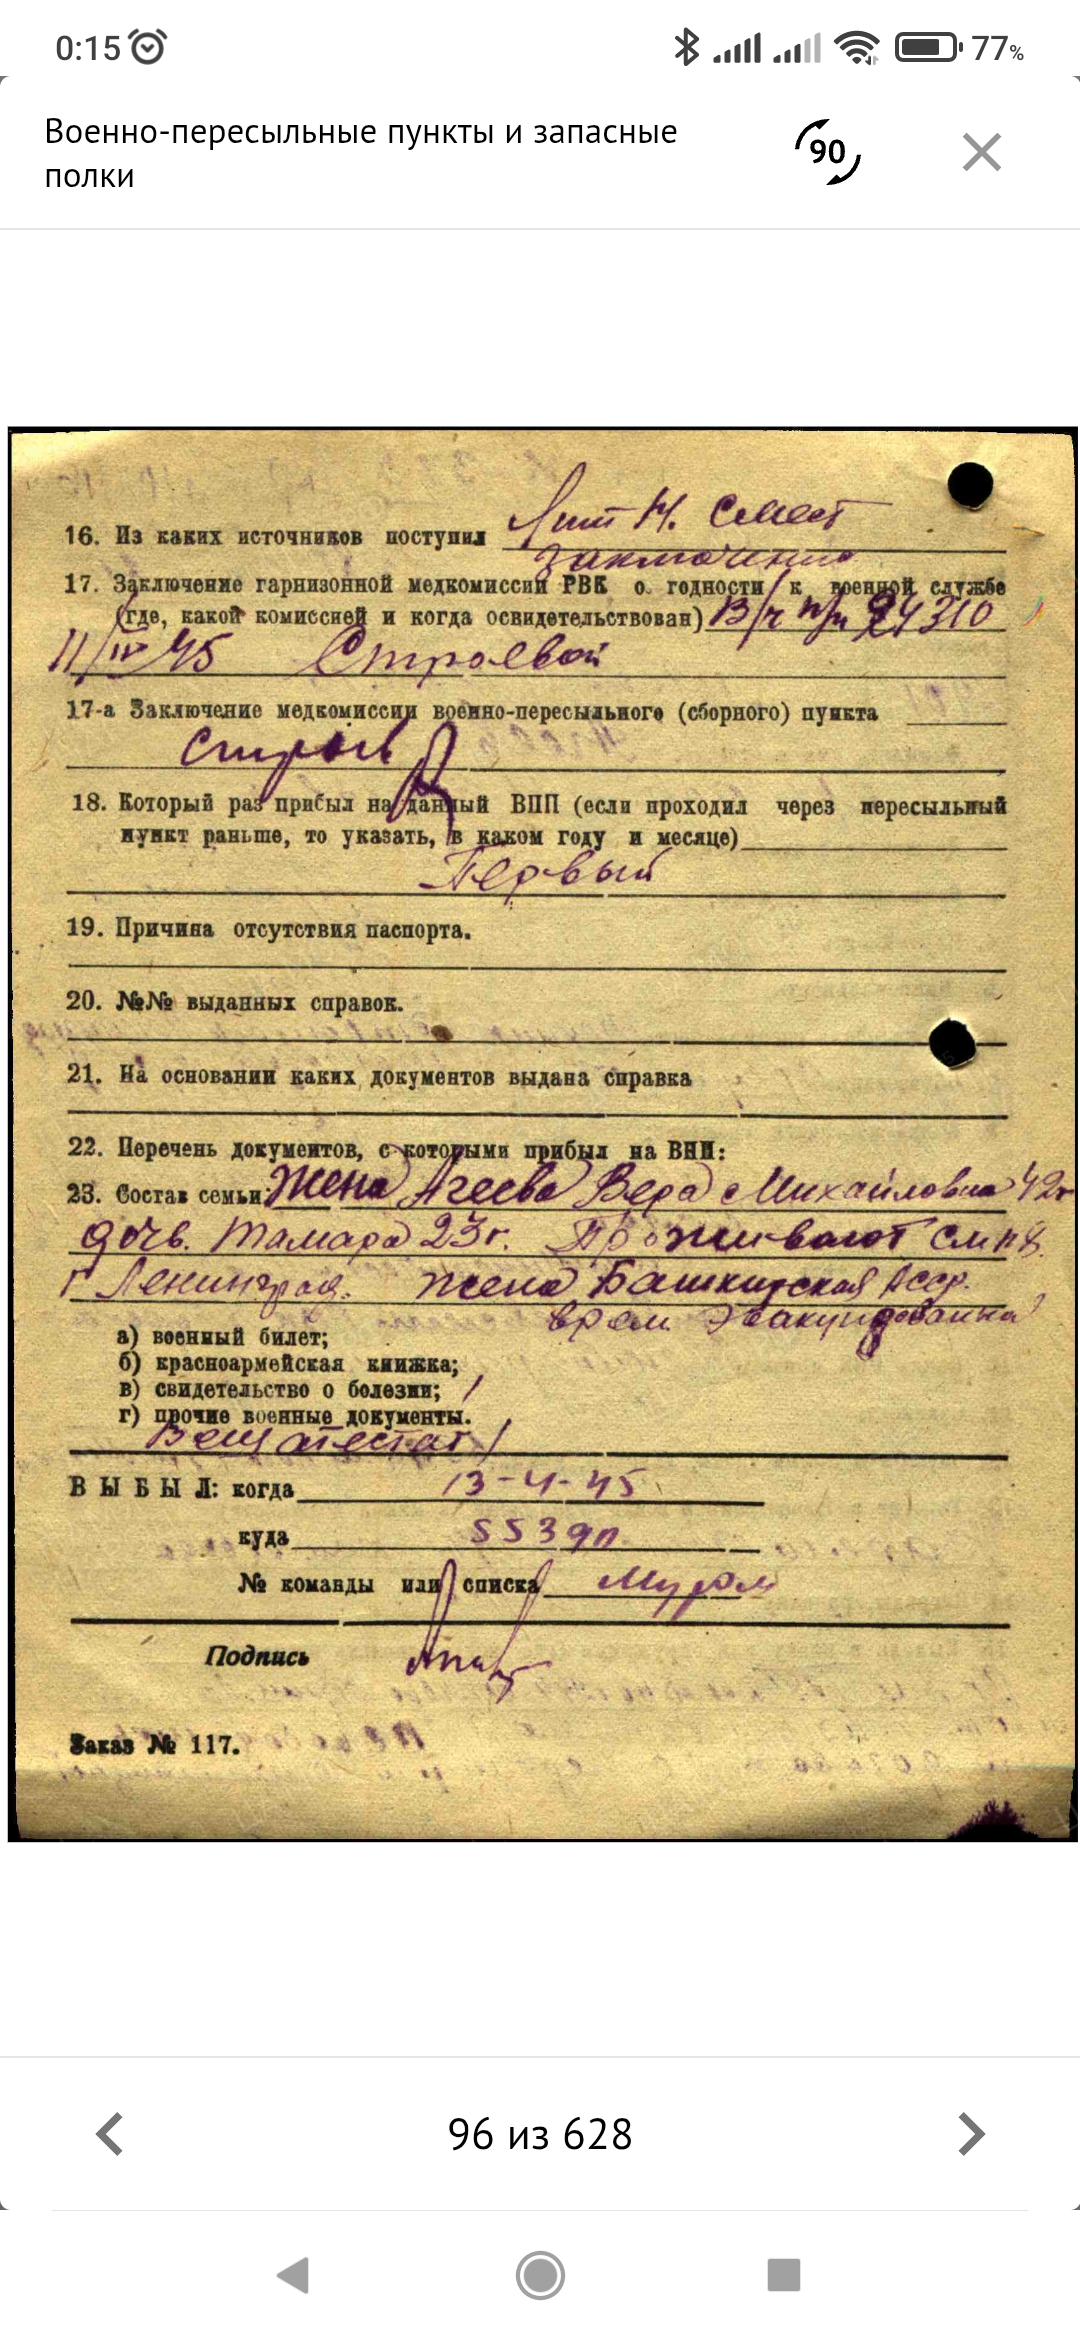 0:15
77%
Военно-пересыльные пункты и запасные
полки
90
16. Из каких источников поступил
заключения
17. Заключение гарнизонной медкомиссии РВК о годности к военной службе
(где, какой комиссией и когда освидетельствован) В/ч п/п 24310
11/IV 45 Строевой
17-а Заключение медкомиссии военно-пересыльного (сборного) пункта
строев
18. Который раз прибыл на данный ВПП (если проходил через пересыльный
пункт раньше, то указать, в каком году и месяце)
Первый
19. Причина отсутствия паспорта.
20. №№ выданных справок.
21. На основании каких документов выдана справка
22. Перечень документов, с которыми прибыл на ВПП:
23. Состав семьи: Жена Агеева Вера Михайловна 42г
дочь. Тамара 23г. Проживают см п 8.
г Ленинград. жена Башкирская Асср.
врем. эвакуирована
а) военный билет;
б) красноармейская книжка;
в) свидетельство о болезни; /
г) прочие военные документы.
Вещ атестат /
ВЫБЫЛ: когда 13-4-45
куда 553 дп.
№ команды или списка Муром
Подпись
Заказ № 117.
96 из 628